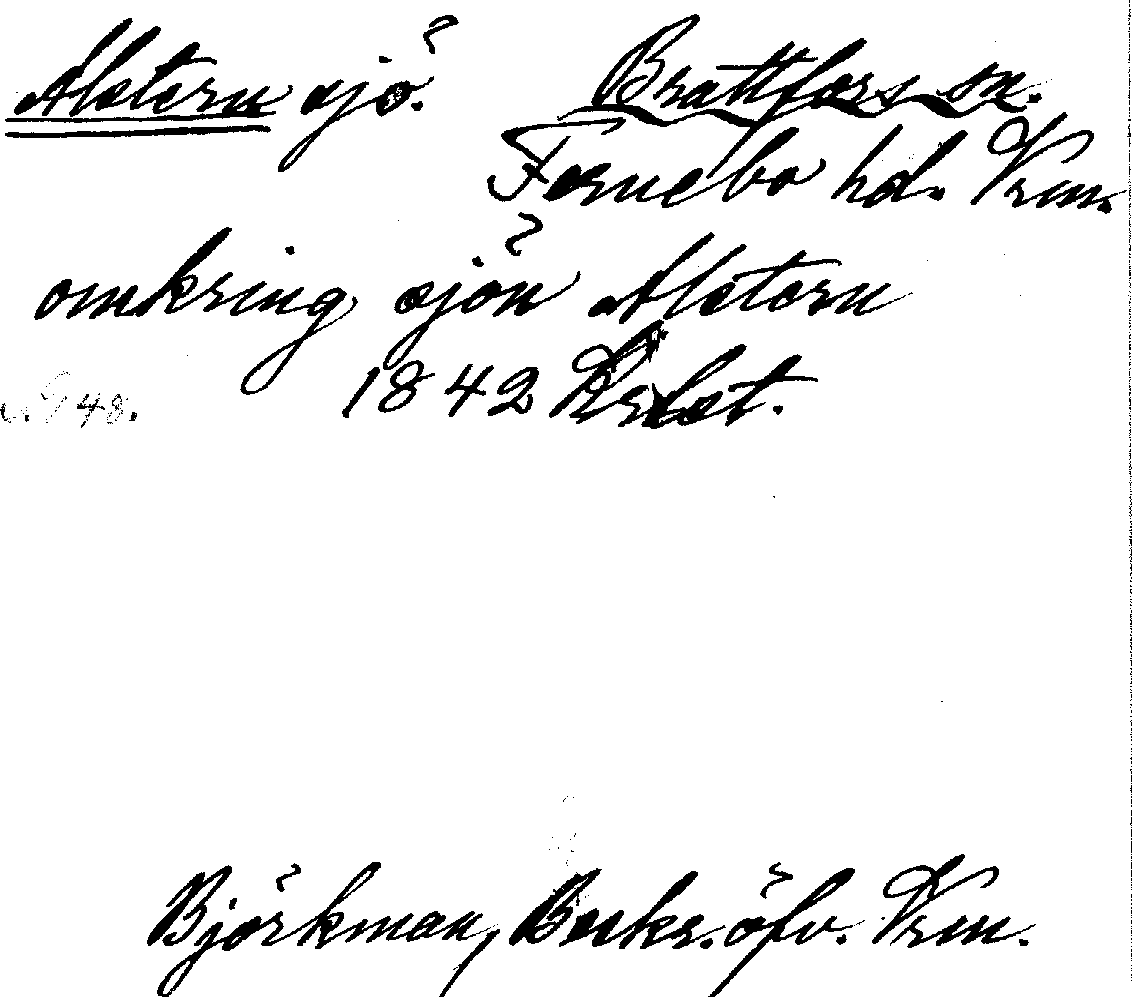 Alstern sjö. Brattfors sn.
Fernebo hd. Vrm.
omkring sjön Alstern
1842
48.
Björkman, Beskr. öfv. Vrm.